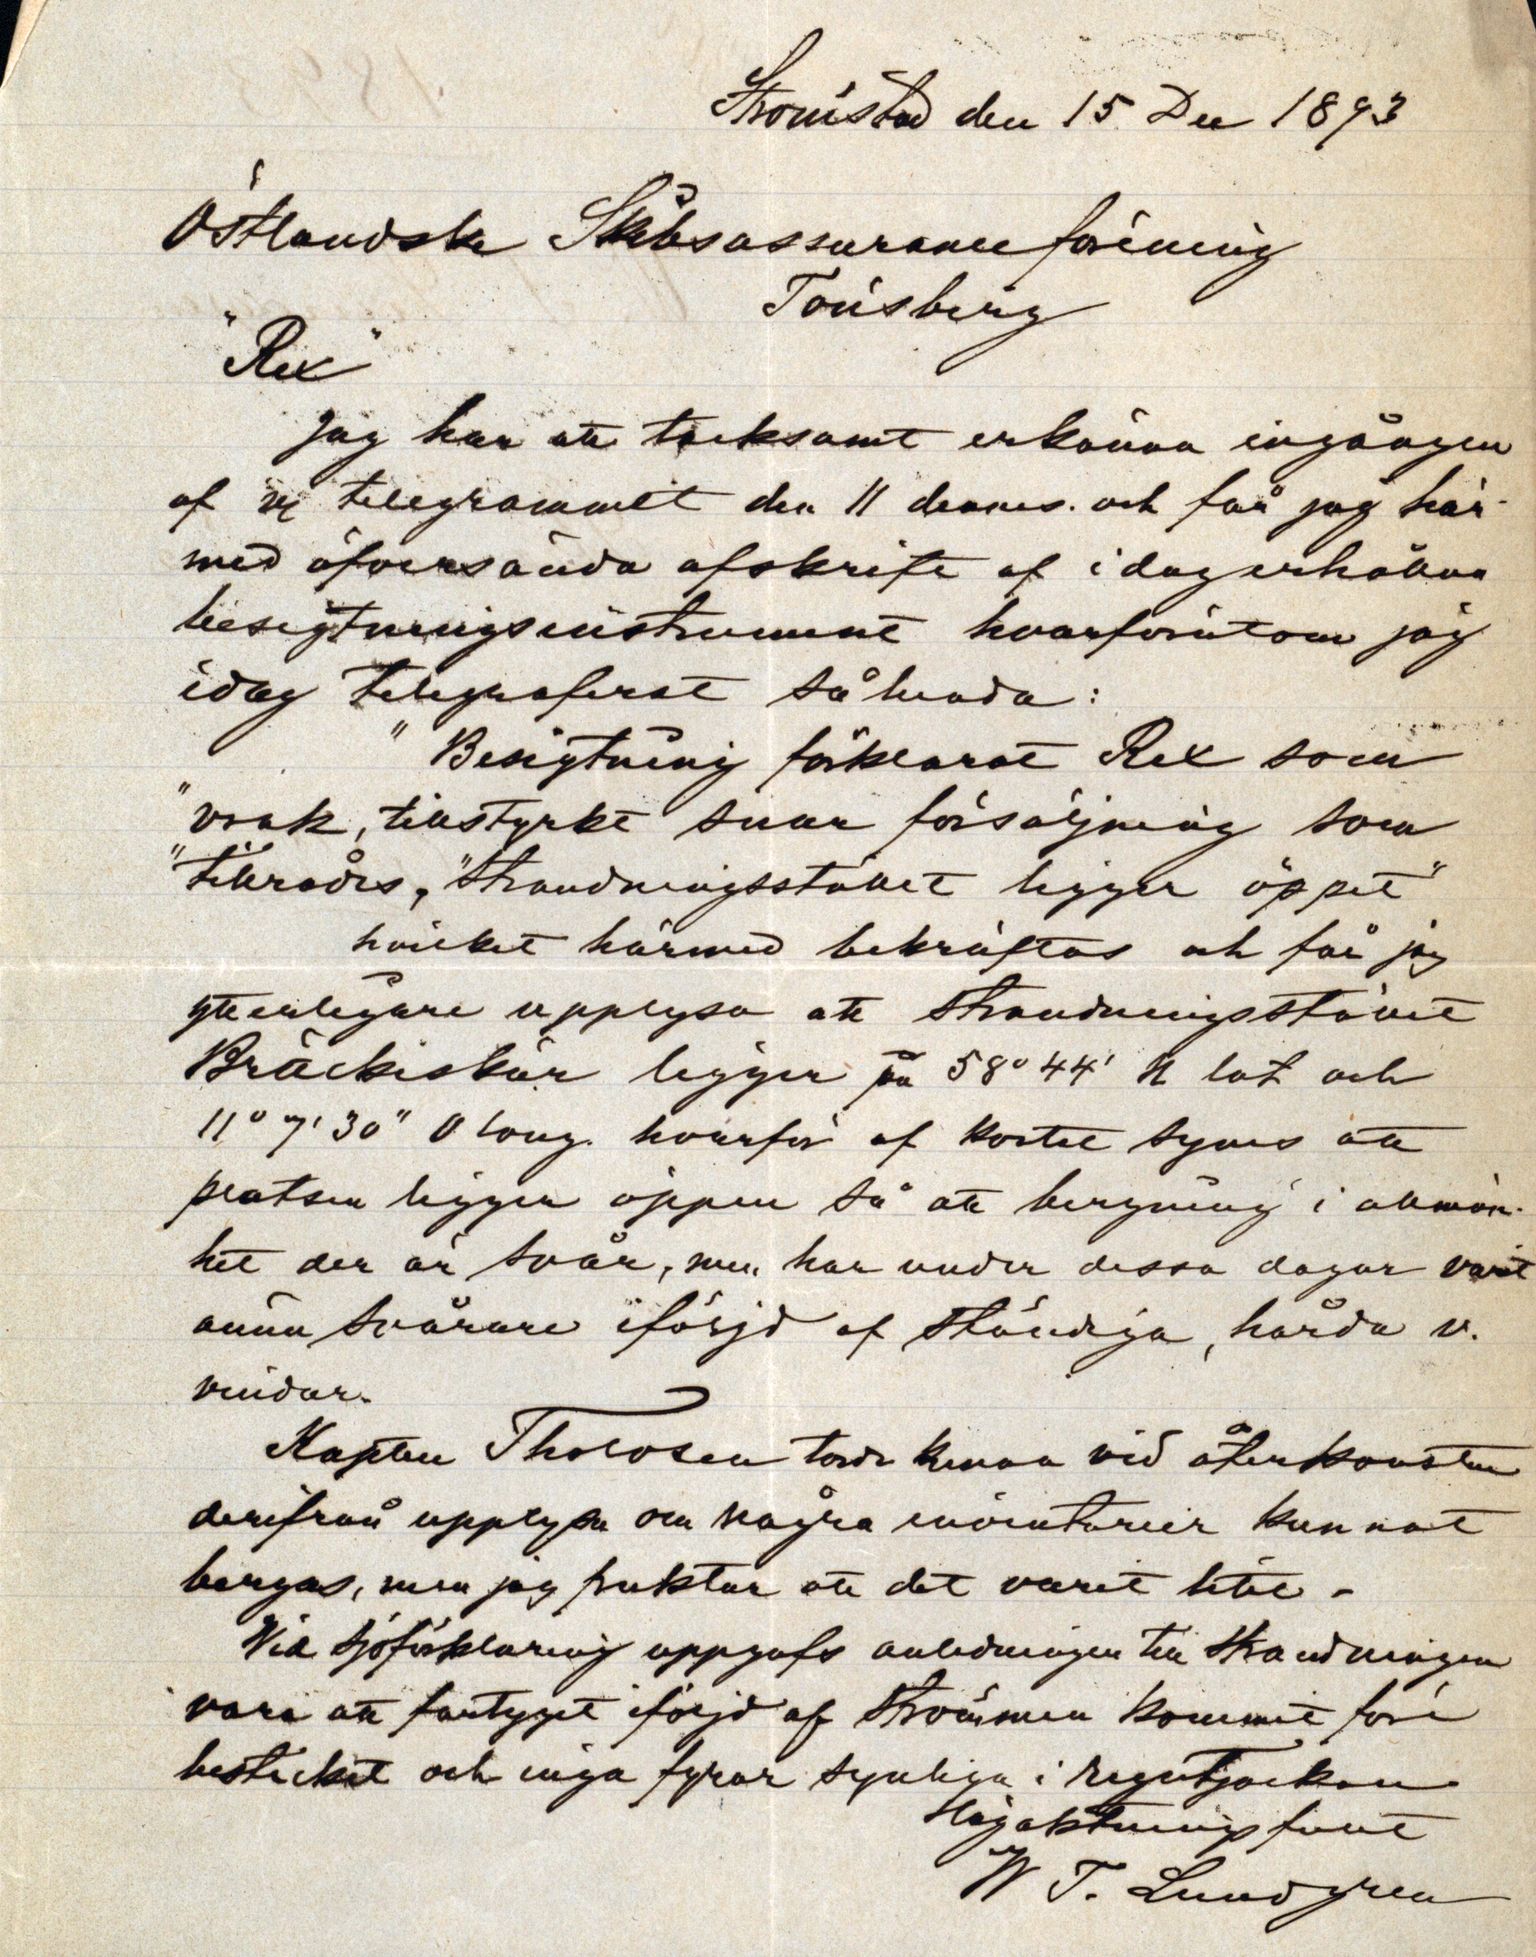 Strömstad den 15 Dec 1893
Östlandske Skibsassuranceförening
Tönsberg
"Rex"
Jag har att tacksamt erkänna ingången
af telegrammet den 11 dennes. och får jag här-
med öfversända afskrift af idag erhållna
besigtningsinstrument hvarförutom jag
idag telegraferat således:
"Besigtning förklarat Rex som
"vrak, tillstyrkt snar försäljning som
"tillrådes, "Strandningsstället ligger öppet"
hvilket härmed bekräftas och får jag
ytterligare upplysa att Strandningsstället
Bräckeskär ligger på 58° 44' N lat och
11° 7' 30" O long. hvarför af kortet synes att
platsen ligger öppen så att bergning i allmän-
het der är svår, men har under dessa dagar varit
ännu svårare iföljd af ständiga, hårda v.
vindar.
Kapten Thorosen torde kunna vid återkomsten
derifrån upplysa om några inventarier kunnat
bergas, men jag fruktar att det varit litet -
Vid sjöförklaring uppgafs anledningen till Strandningen
vara att fartyget iföljd af Strömmen kommit för i
besticket och inga fyrar synliga i regntjockan
Högaktningsfullt
W T. Lundgren